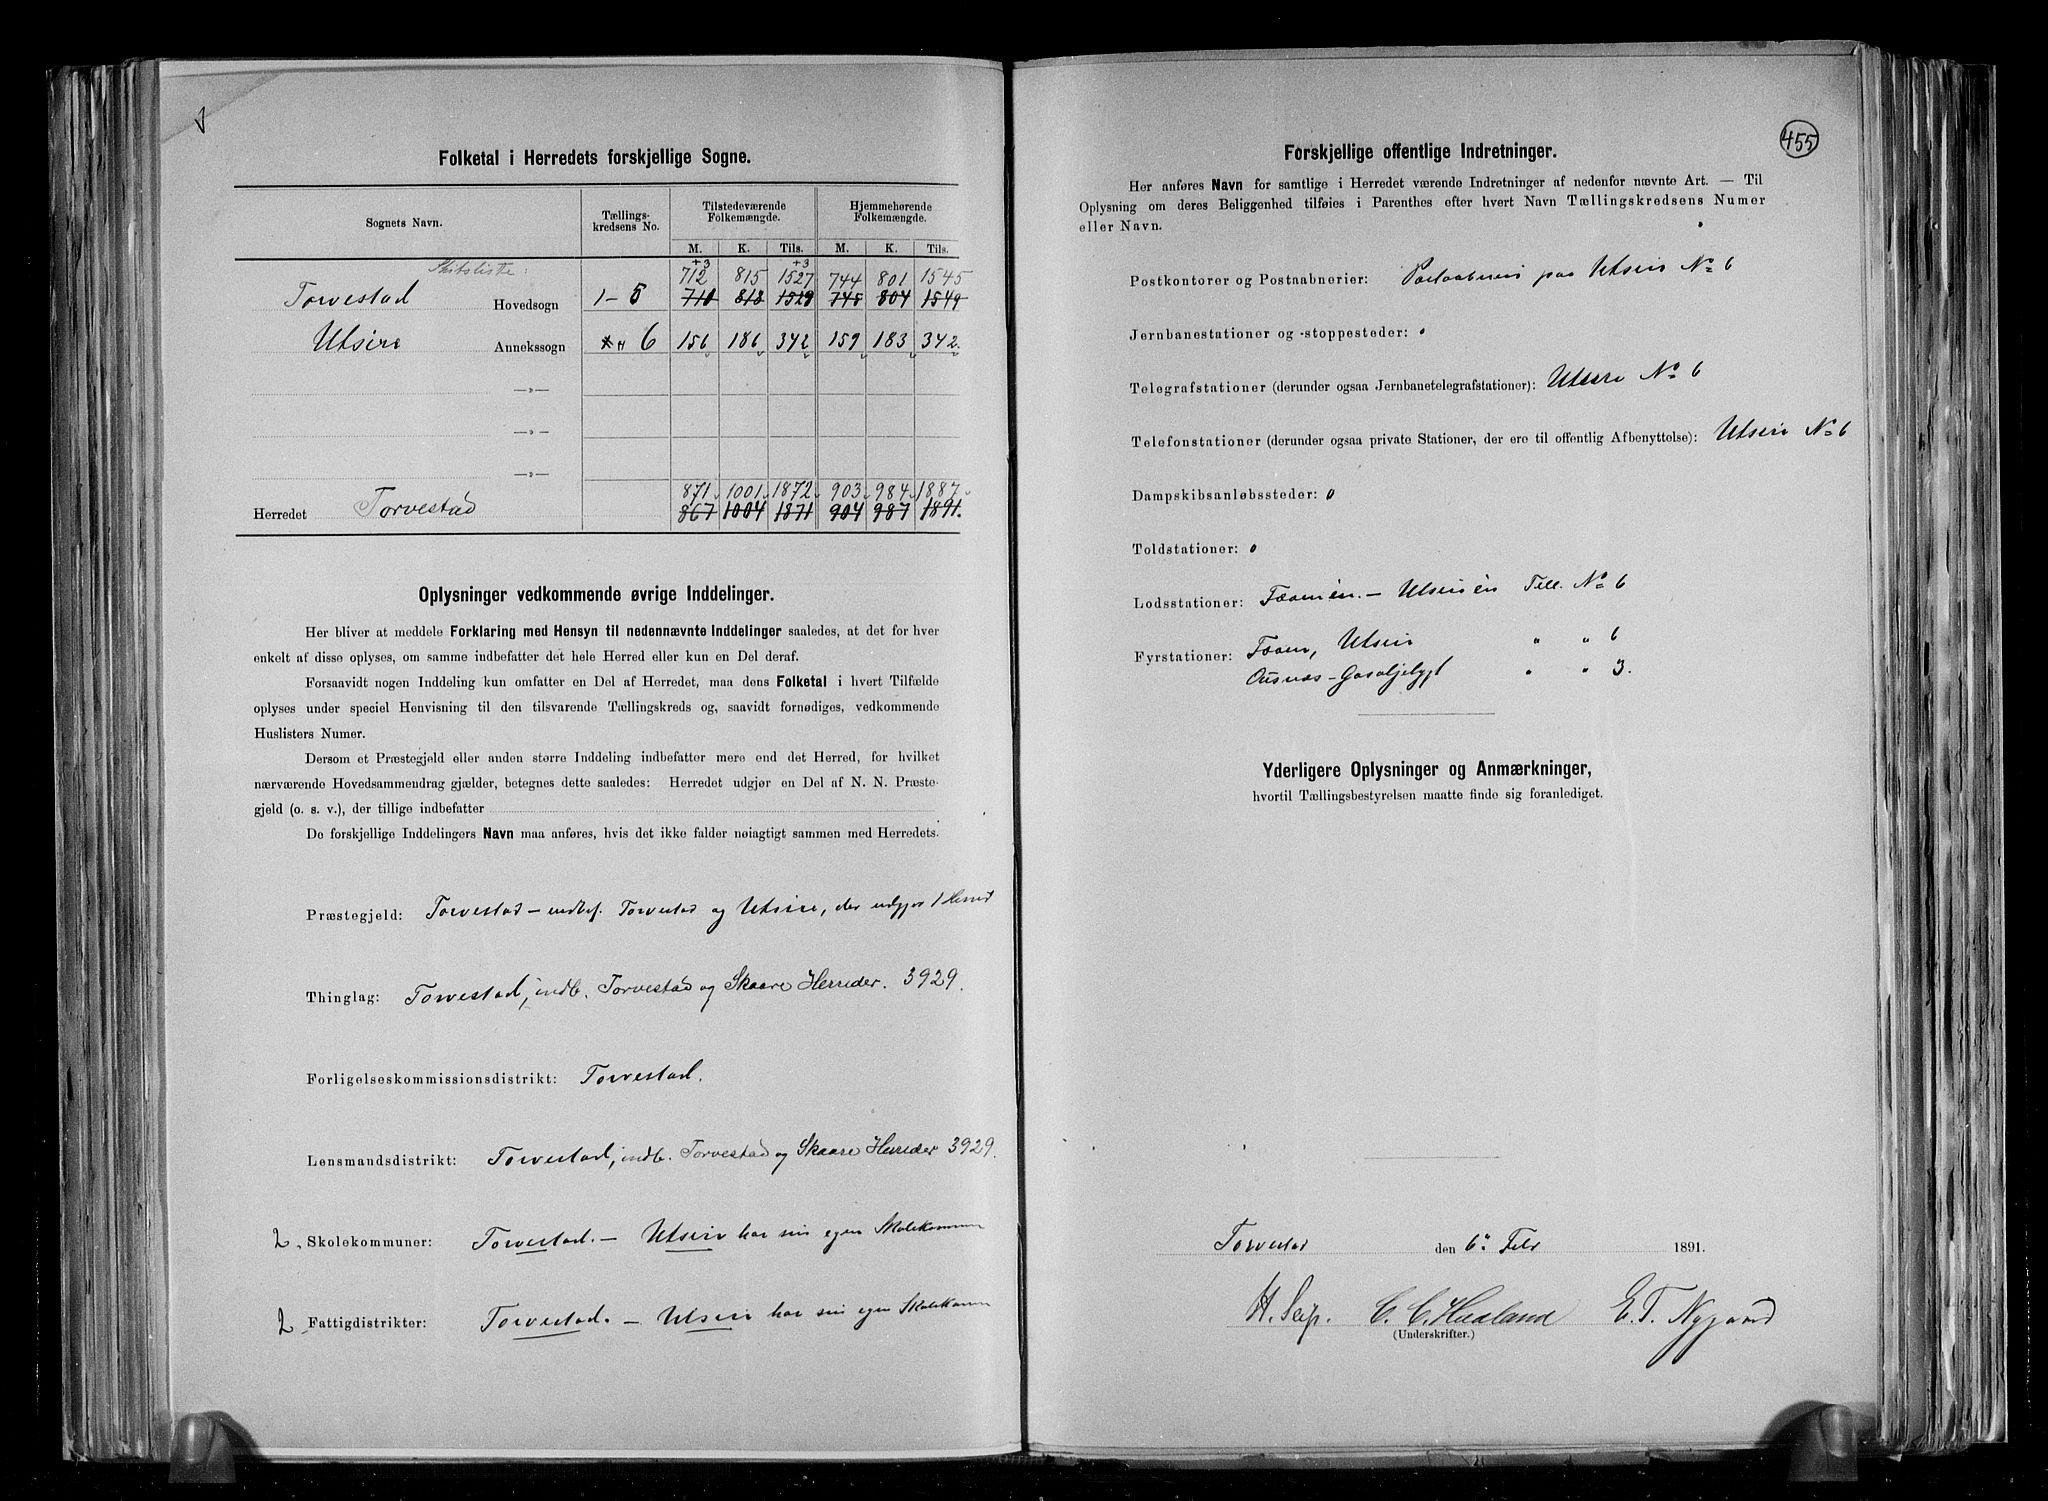 Folketal i Herredets forskjellige Sogne.
Sognets Navn. Tællings-kredsens No. Tilstedeværende Folkemængde. Hjemmehørende Folkemængde.
M. K. Tils. M. K. Tils.
+3 +3
712 815 1527 744 801 1545
Torvestad Hovedsogn 1-5 710 818 1529 745 804 1549
Utsire Annekssogn 6 156 186 342 159 183 342.
—»—
—»—
—»—
871 1001 1872 903 984 1887
Herredet Torvestad 867 1004 1871 904 987 1891.
Oplysninger vedkommende øvrige Inddelinger.
Her bliver at meddele Forklaring med Hensyn til nedennævnte Inddelinger saaledes, at det for hver
enkelt af disse oplyses, om samme indbefatter det hele Herred eller kun en Del deraf.
Forsaavidt nogen Inddeling kun omfatter en Del af Herredet, maa dens Folketal i hvert Tilfælde
oplyses under speciel Henvisning til den tilsvarende Tællingskreds og, saavidt fornødiges, vedkommende
Huslisters Numer.
Dersom et Præstegjeld eller anden større Inddeling indbefatter mere end det Herred, for hvilket
nærværende Hovedsammendrag gjælder, betegnes dette saaledes: Herredet udgjør en Del af N. N. Præste-
gjeld (o. s. v.), der tillige indbefatter
De forskjellige Inddelingers Navn maa anføres, hvis det ikke falder nøiagtigt sammen med Herredets.
Præstegjeld: Torvestad – indbef. Torvestad og Utsire, der udgjør 1 Herred
Thinglag: Torvestad, indb. Torvestad og Skaare Herreder. 3929.
Forligelseskommissionsdistrikt: Torvestad.
Lensmandsdistrikt: Torvestad, indb. Torvestad og Skaare Herreder 3929.
2 Skolekommuner: Torvestad. – Utsire har sin egen Skolekommun
2 Fattigdistrikter: Torvestad. – Utsire har sin egen Skolekomm
455
Forskjellige offentlige Indretninger.
Her anføres Navn for samtlige i Herredet værende Indretninger af nedenfor nævnte Art. — Til
Oplysning om deres Beliggenhed tilføies i Parenthes efter hvert Navn Tællingskredsens Numer
eller Navn.
Postkontorer og Postaabnerier: Postaabneri paa Utsire No 6
Jernbanestationer og -stoppesteder: 0
Telegrafstationer (derunder ogsaa Jernbanetelegrafstationer): Utsire No 6
Telefonstationer (derunder ogsaa private Stationer, der ere til offentlig Afbenyttelse): Utsire No 6
Dampskibsanløbssteder: 0
Toldstationer: 0
Lodsstationer: – Utsireøen Tell. No 6
Fyrstationer: Utsire " " 6
" " 3.
Yderligere Oplysninger og Anmærkninger,
hvortil Tællingsbestyrelsen maatte finde sig foranlediget.
Torvestad den 6te Febr 1891.
H. Seip. C. C. Hauland E. T. Nygaard
(Underskrifter.)